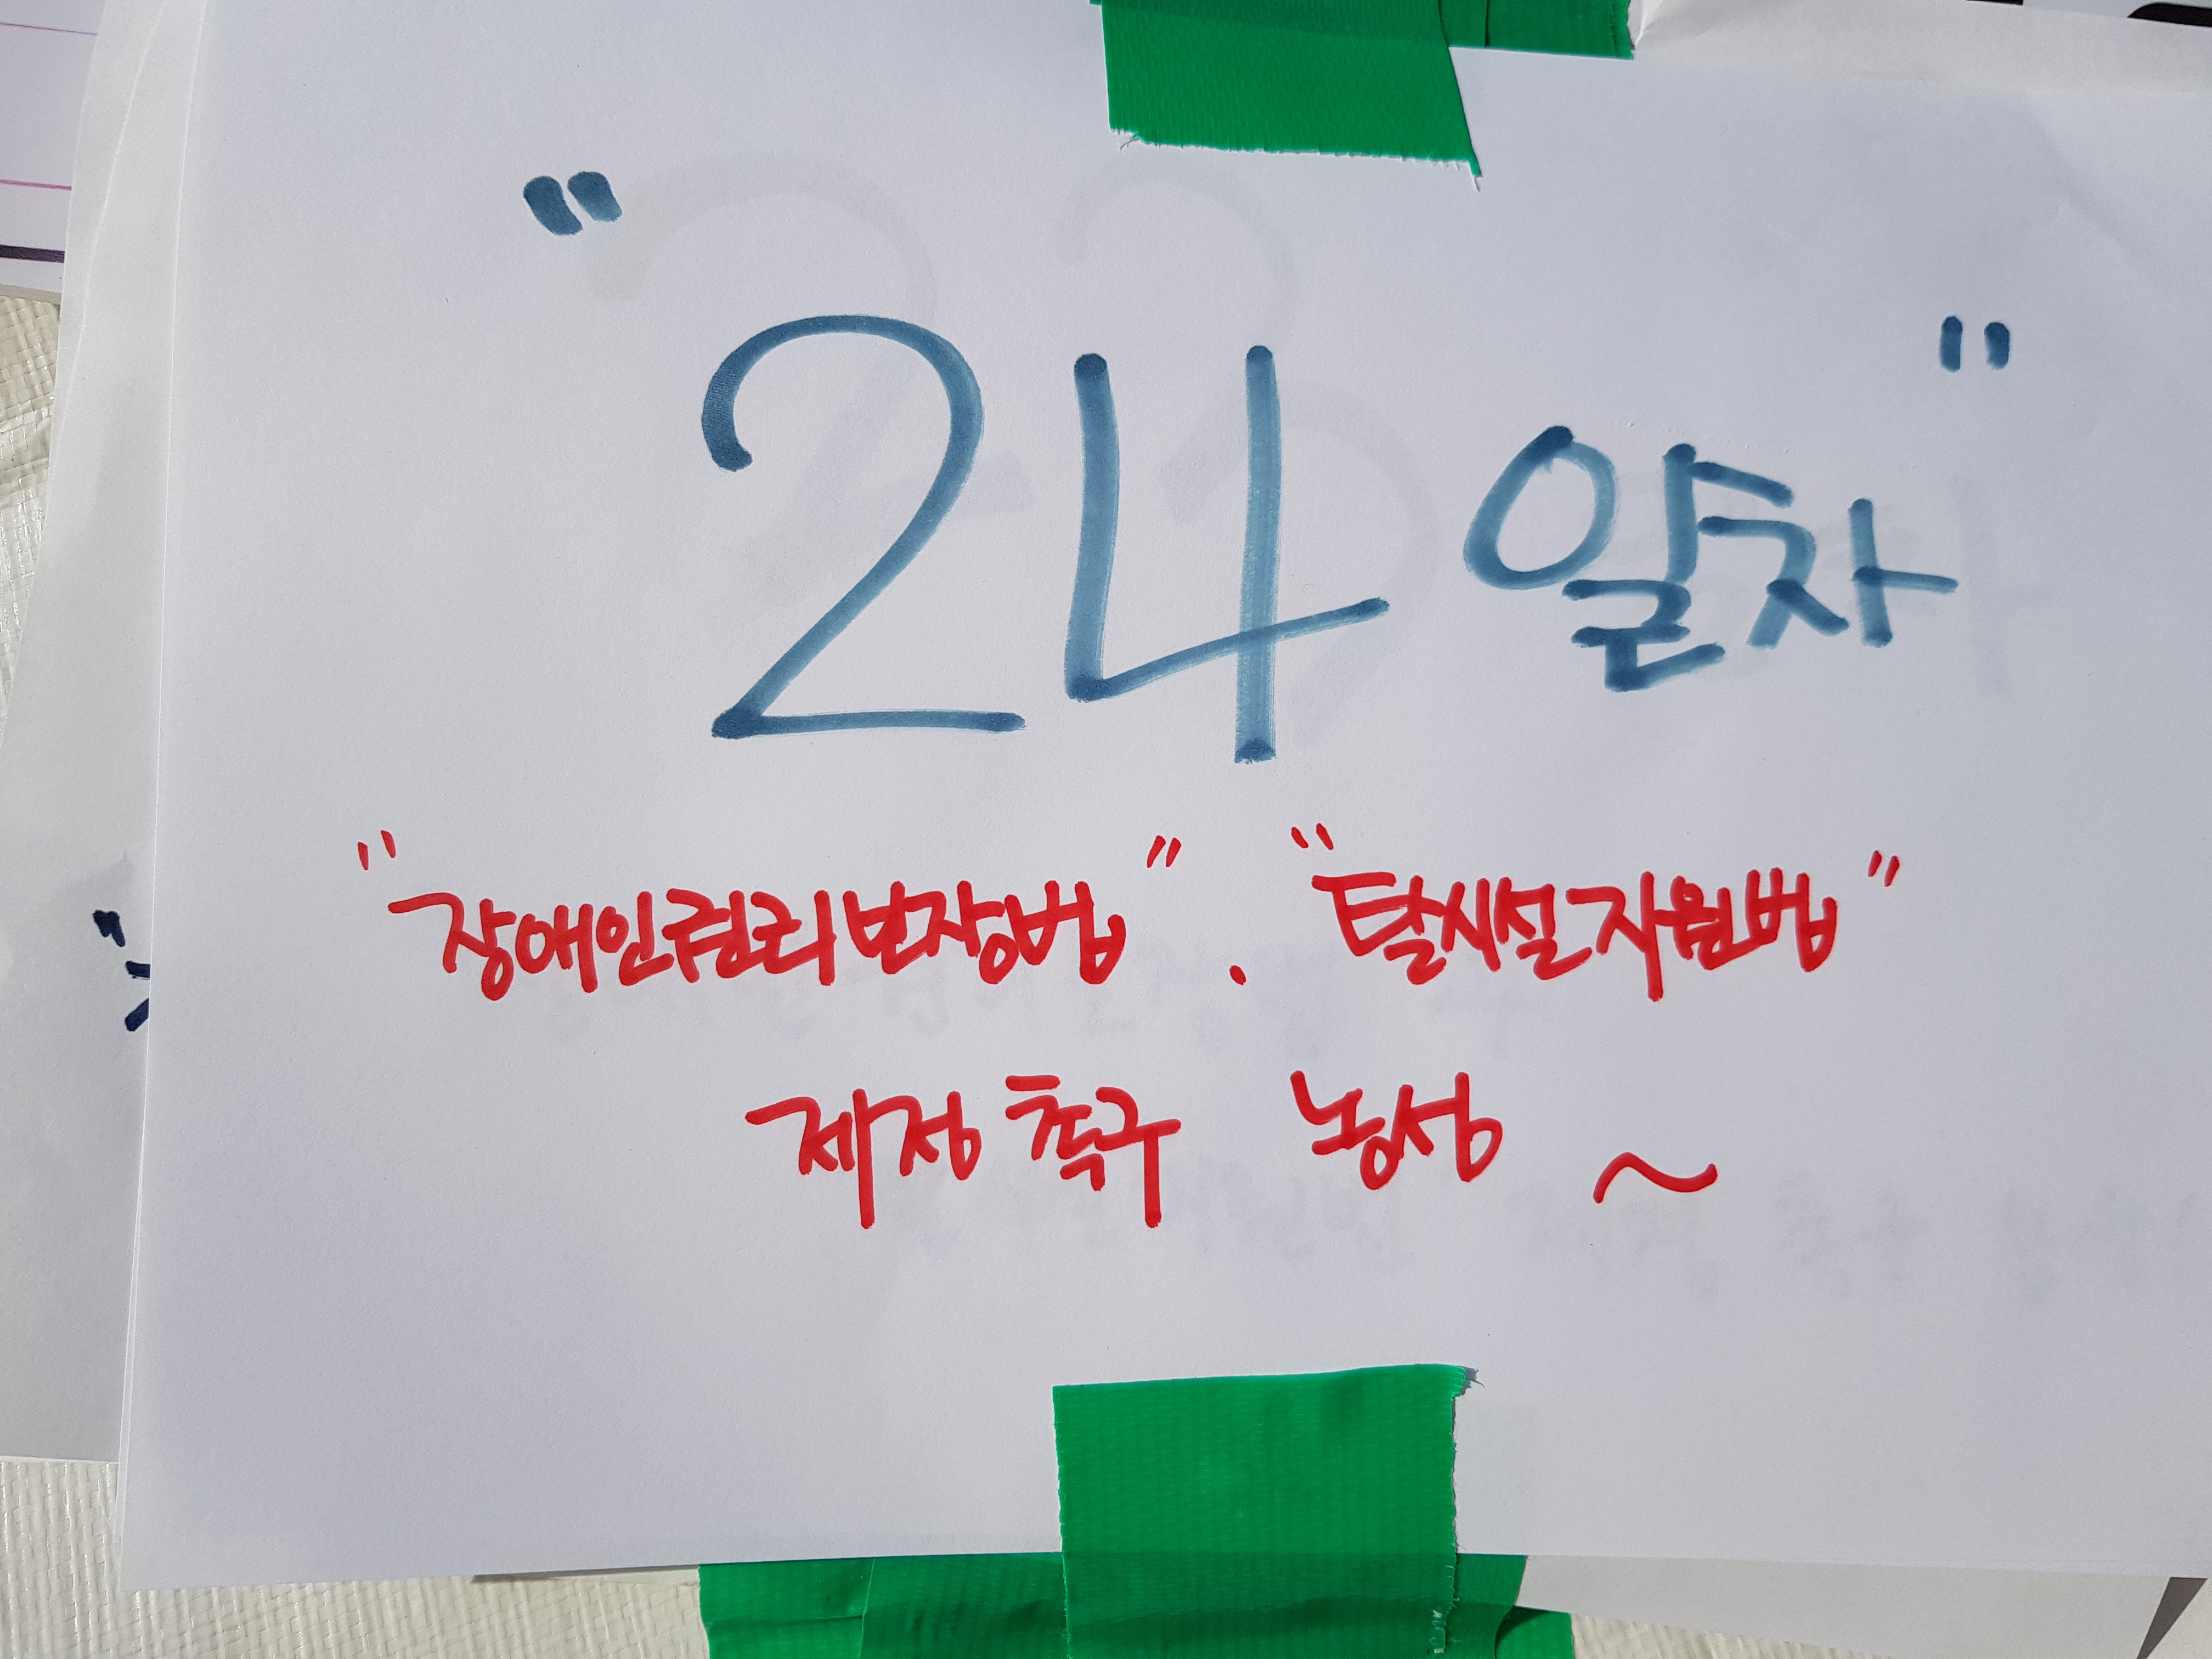 "24일차"
"장애인권리보장법". "탈시설지원법"
제정 촉구 농성 ~